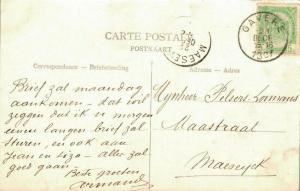 CARTE POSTALE
POSTKAART
Correspondance — Briefwisseling
Adresse — Adres
GAVERE
MAESEYCK
Brief zal maandag
aankomen - dat wil
zeggen dat ik u morgen
eenen langen brief zal
sturen, en ook aan
Jean en Liza - alles zal
goed gaan -
Beste groeten
Armand
Mynheer Pelsers
Maastraat
Maeseyck